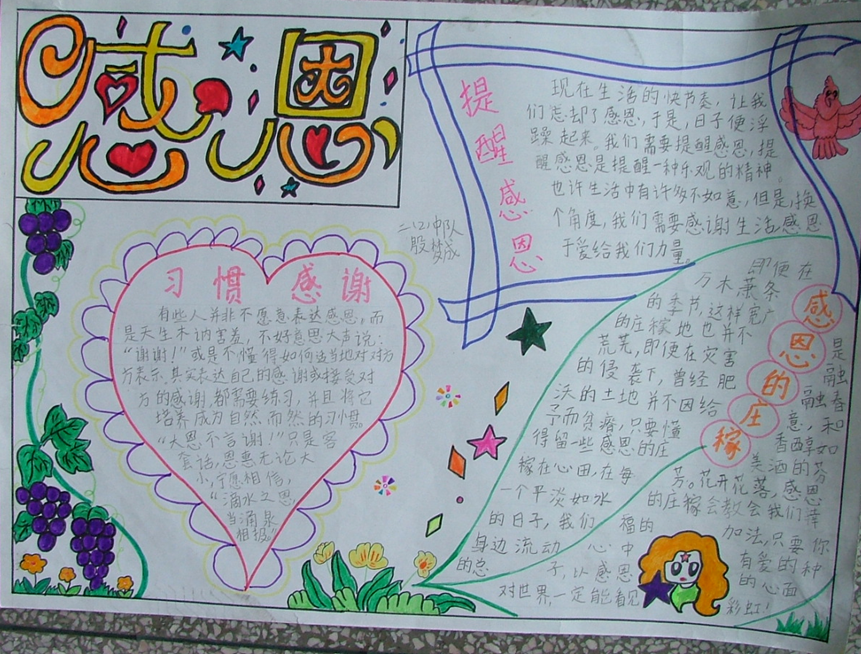 感恩
提醒感恩
现在生活的快节奏，让我
们忘却了感恩，于是，日子便浮
躁起来。我们需要提醒感恩，提
醒感恩是提醒一种乐观的精神。
也许生活中有许多不如意，但是，换
个角度，我们需要感谢生活，感恩
于爱给我们力量。
二(2)中队
殷梦成
习惯感谢
有些人并非不愿意表达感恩，而
是天生木讷害羞，不好意思大声说：
“谢谢！”或是不懂得如何适当地对对方
方表示，其实表达自己的感谢或接受对
方的感谢，都需要练习，并且将它
培养成为自然而然的习惯。
“大恩不言谢！”只是客
套话，恩惠无论大
小，宁愿相信，
“滴水之恩，
当涌泉
相报。”
感恩的庄稼
即便在
万木萧条
的季节，这样宽广
的庄稼地也并不
荒芜，即便在灾害
的侵袭下，曾经肥
沃的土地并不因给
予而贫瘠，只要懂
得留一些感恩的庄
稼在心田，在每
一个平淡如水
的日子，我们
身边流动
的总
是
融融
春
意，和
香醇如
美酒的芬
芳。花开花落，感恩
的庄稼会教会我们幸
福的加法，只要你
心中有爱的种
子，以感恩的心面
对世界，一定能看见彩虹！